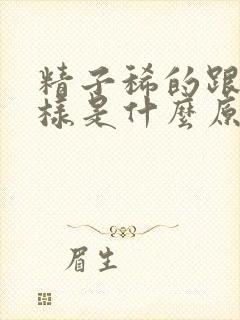 精子稀的跟
樣是什麼原
眉生